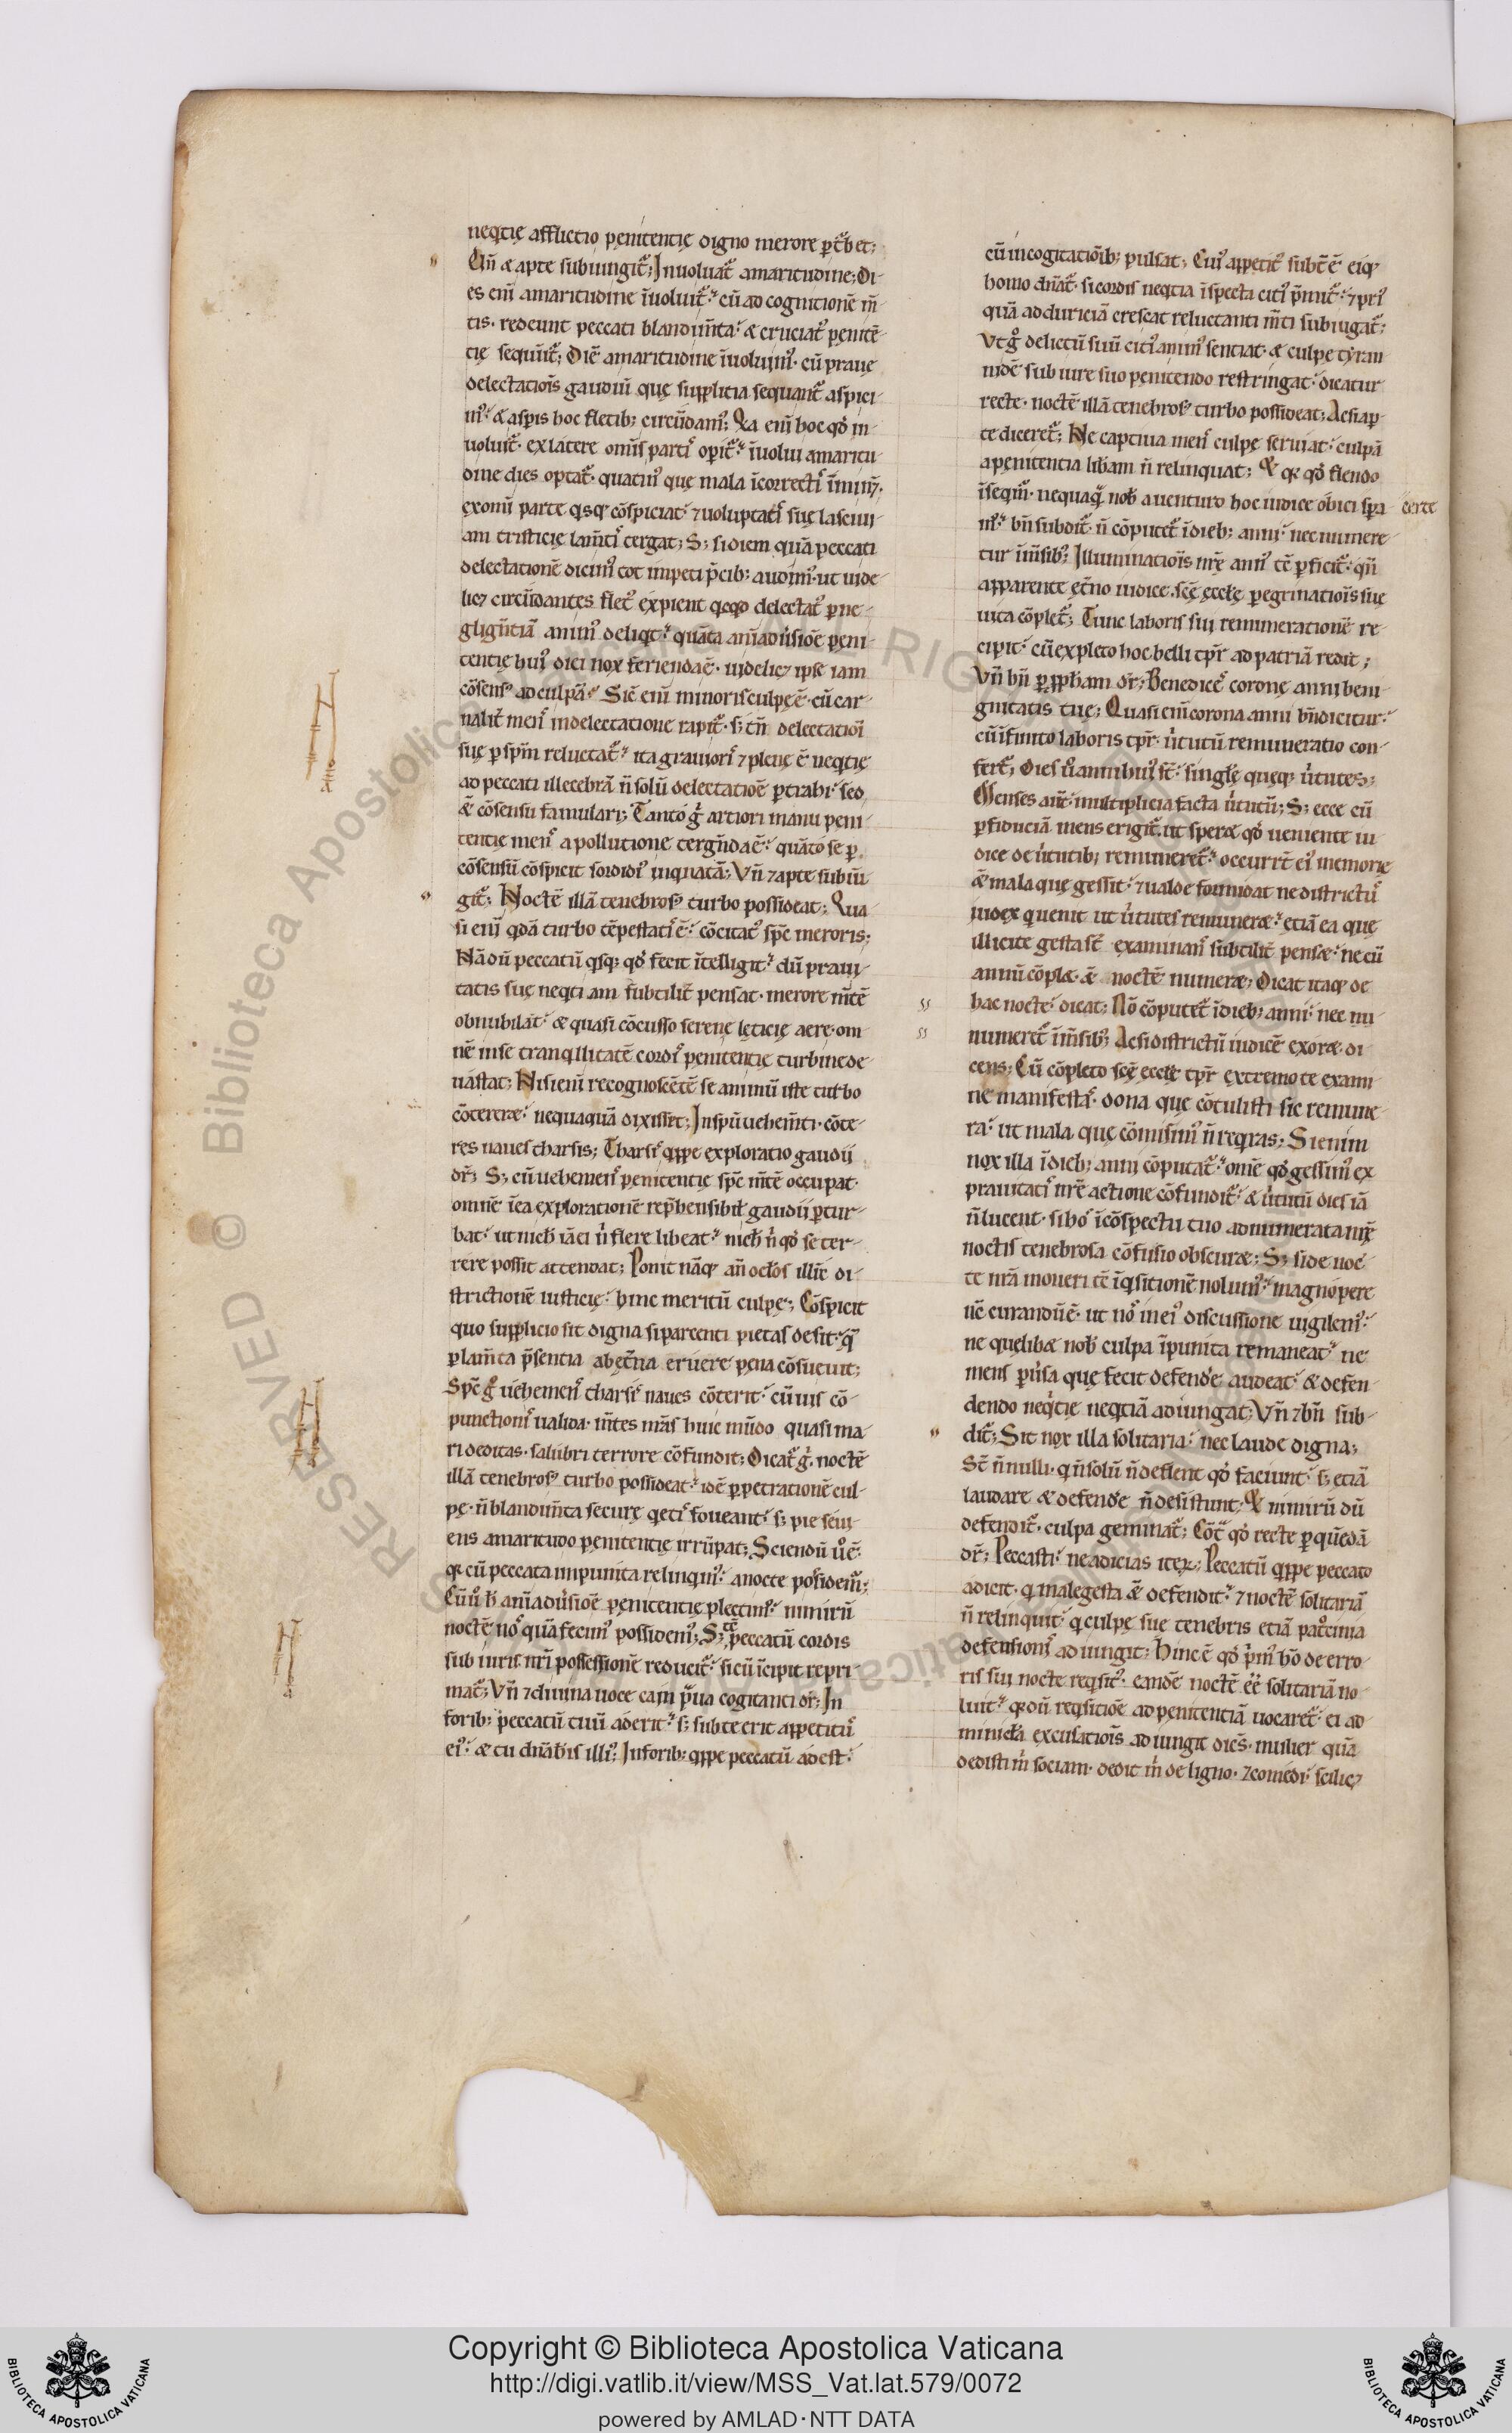 neq̇tię afflictio pęnitentię digno merore ꝑt͛bet;
Vn̄ & apte subiungit͛; Inuoluat͛ amaritudine; Di-
es eni̅ amaritudine i̅uoluit͛. cu̅ ad cognitione̅ m̅-
tis. redeunt peccati blandim̅ta. & cruciat᷒ pęnite̅-
tię sequu̅t͛; Die̅ amaritudine i̅uoluim᷒. cu̅ prauę
delectatiois̅ gaudiu̅ quę supplicia sequant͛ aspici-
m᷒. & aspis hoc fletib; circu̅dam᷒; Qa eni̅ hoc qd̓ in-
uoluit͛. ex latere om̅is parti᷒ opit͛. i̅uolui amaritu-
dine dies optat͛. quatin᷒ quę mala i̅correcti᷒ i̅mineꝫ.
ex omi̅ parte qsq; co̅spiciat. ⁊ uoluptati᷒ suę lasciui-
am tristicię lam̅ti᷒ tergat; Sꝫ si diem qua̅ peccati
delectatione̅ dicim᷒ tot impeti p̅cib; audim᷒. ut uide-
liceꝫ circu̅dantes flet᷒ expient qcqd delectat᷒ ꝑ ne-
glign̅tia̅ anim᷒ deliqt. qua̅ta ani̅aduersioe̅ pęni-
tentię hui᷒ diei nox ferienda e̅. uidelicꝫ ipse iam
co̅sens᷒ ad culpa̅. Sic̅ eni̅ minoris culpę e̅. cu̅ car-
nalit͛ mens᷒ in delectatione rapit͛. sꝫ tn̅ delectatioi̅
suę ꝑ spm̅ reluctat͛. ita grauiori᷒ ⁊ plenę e̅ neqtię
ad peccati illecebra̅ n̅ solu̅ delectatioe̅ ꝑtrahi. sed
& co̅sensu famulari; Tanto g̓ artiori manu pęni-
tentię mens᷒ a pollutione tergn̅da e̅. qua̅to se ꝑ
co̅sensu̅ co̅spicit sordidi᷒ inquinata̅; Vn̅ ⁊ apte subiu̅-
git͛; Nocte̅ illa̅ tenebros᷒ turbo possideat; Qua-
si eni̅ qda̅ turbo te̅pestati᷒ e̅. co̅citat᷒ spc̅ meroris;
Na̅ du̅ peccatu̅ qsq; qd̓ fecit i̅telligit. du̅ praui-
tatis suę neqtiam subtilit͛ pensat. merore m̅te̅
obnubilat. & quasi co̅cusso serene lęticię aere. om-
ne̅ in se tranqllitate̅ cordi᷒ pęnitentię turbine de-
uastat; Nisi eni̅ recognosce̅te̅ se animu̅ iste turbo
co̅tereret. nequaqua̅ dixisset; In spu̅ uehem̅ti. co̅te-
res naues tharsis; Tharsi᷒ qppe exploratio gaudii
dr̅; Sꝫ cu̅ uehemens᷒ pęnitentię spc̅ m̅te̅ occupat.
omne̅ i̅ ea exploratione̅ rep̅hensibil̓ gaudii ꝑtur-
bat. ut nich̓ ia̅ ei n̓ flere libeat. nich̓ n̓ qd̓ se ter-
rere possit attendat; Ponit na̅q; an̅ oclo̓s illic̅ di-
strictione̅ iusticię. hinc meritu̅ culpę; Co̅spicit
quo supplicio sit digna si parcenti pietas desit. q̅
ꝑ lam̅ta p̅sentia ab ęt̅na eruere pęna co̅sueuit;
Spc̅ g̊ uehemens᷒ tharsi᷒ naues co̅terit. cu̅ uis co̅-
punctionis᷒ ualida. m̅tes nr̅as huic mu̅do quasi ma-
ri deditas. salubri terrore co̅fundit; Dicat͛ g̓. nocte̅
illa̅ tenebros᷒ turbo possideat. ide̅ ꝑpetratione̅ cul-
pę. n̅ blandim̅ta securę qeti᷒ foueant. sꝫ pie seui-
ens amaritudo pęnitentię irru̅pat; Sciendu̅ u̓ e̅.
q; cu̅ peccata impunita relinquim᷒. a nocte possidem̅᷒;
Cu̅ u̓ h̓ ani̅aduersioe̅ pęnitentię plectim᷒. nimiru̅
nocte̅ nos᷒ qua̅ fecim᷒ possidem᷒; Sꝫ te̅ peccatu̅ cordis
sub iuris nr̅i possessione̅ reducit͛. si cu̅ i̅cipit repri-
mat͛; Vn̅ ⁊ diuina uoce cain p̅ua cogitanti dr̅; In
forib; peccatu̅ tuu̅ aderit. sꝫ sub te erit appetit᷒
ei᷒. & tu dn̅ab̓is illi᷒; In forib; qppe peccatu̅ adest.
cu̅ in cogitatioi̅b; pulsat; Cui᷒ appetit᷒ subt̅ e̅ eiq;
homo dn̅at͛. si cordis neqtia i̅specta citi᷒ p̅mit͛. ⁊ pri᷒
qua̅ ad duricia̅ crescat reluctanti m̅ti subiugat͛;
Vt g̊ delictu̅ suu̅ citi᷒ anim᷒ sentiat. & culpę tyran-
nide̅ sub iure suo penitendo restringat. dicatur
recte. nocte̅ illa̅ tenebros᷒ turbo possideat; Ac si ap-
te diceret͛; Ne captiua mens᷒ culpę seruiat. culpa̅
a penitentia lib̓am n̅ relinquat; Et q; qd̓ flendo
i̅seqm᷒. nequaq̅ nob̓ a uenturo hoc iudice obici spa-
certe
m᷒. bn̅ subdit͛. n̅ co̅putet͛ i̅ dieb; anni. nec numere-
tur i̅ m̅sib᷒; Illuminatiois̅ nr̅ę ann᷒ tc̅ ꝑficit͛. qn̅
apparente ęt̅no iudice. scę̅ ęcclę̅ ꝑegrinatiois̅ suę
uita co̅plet͛; Tunc laboris sui remuneratione̅ re-
cipit. cu̅ expleto hoc belli tpr̅ ad patria̅ redit;
Vn̅ bn̅ ꝑ ppham̅ dr̅; Benedices᷒ coronę anni beni-
gnitatis tuę; Quasi eni̅ corona anni bn̅dicitur.
cu̅ i̅ finito laboris tpr̅. u̓tutu̅ remuneratio con-
fert͛; Dies u̓ anni hui᷒ st̅. singlę̅ quęq; u̓tutes;
Menses aut̅. multiplicia facta u̓tutu̅; Sꝫ ecce cu̅
ꝑ fiducia̅ mens erigit͛. ut speret qd̓ ueniente iu-
dice de u̓tutib; remuneret͛. occurrt̅ ei᷒ memorie
& mala quę gessit. ⁊ ualde formidat ne districtus᷒
iudex q uenit ut u̓tutes remuneret. etia̅ ea quę
illicite gesta st̅ examinans᷒ subtilit͛ penset. ne cu̅
annu̅ co̅plet. & nocte̅ numeret; Dicat itaq; de
hac nocte. dicat; No̅ co̅putet͛ i̅ dieb; anni. nec nu-
numeret͛ i̅ m̅sib᷒; Ac si districtu̅ iudice̅ exoret di-
cens; Cu̅ co̅pleto scę̅ ęcclę̅ tpr̅ extremo te exami-
ne manifestas᷒. dona que co̅tulisti sic remune-
ra. ut mala que co̅misim᷒ n̅ reqras; Si enim
nox illa i̅ dieb; anni co̅putat͛. ome̅ qd̓ gessim᷒ ex
prauitati᷒ nr̅e actione co̅fundit͛. & u̓tutu̅ dies ia̅
n̅ lucent. si hos᷒ i̅ co̅spectu tuo adnumerata nr̅ę
noctis tenebrosa co̅fusio obscuret; Sꝫ si de noc-
te nr̅a moueri tc̅ i̅qsitione̅ nolum᷒. magnopere
nc̅ curandu̅ e̅. ut nos᷒ in ei᷒ discussione uigilem᷒.
ne quęlibet nob̓ culpa i̅punita remaneat. ne
mens ꝑu̓sa quę fecit defende̓ audeat. & defen-
dendo neqtię neqtia̅ adiungat; Vn̅ ⁊ bn̅ sub-
dit͛; Sit nox illa solitaria. nec laude digna;
St̅ n̅nulli. q n̅ solu̅ n̅ deflent qd̓ faciunt. sꝫ etia̅
laudare & defende̓ n̅ desistunt; Et nimiru̅ du̅
defendit͛. culpa geminat͛; Cot̅ qd̓ recte ꝑ queda̅
dr̅; Peccasti. ne adicias iteꝝ; Peccatu̅ qppe peccato
adicit. q male gesta & defendit. ⁊ nocte̅ solitaria̅
n̅ relinquit. q culpę sue tenebris etia̅ pat͛cinia
defensionis᷒ adiungit; Hinc e̅ qd̓ p̓m᷒ ho̅ de erro-
ris sui nocte reqsit᷒. eande̅ nocte̅ ee̅̅ solitaria̅ no-
luit. q; du̅ reqsitioe̅ ad penitentia̅ uocaret͛. ei ad-
minicla̓ excusatiois̅ adiungit dice̅s. mulier qua̅
dedisti m̓ sociam. dedit m̓ de ligno. ⁊ comedi. sciliceꝫ
Copyright © Biblioteca Apostolica Vaticana
http://digi.vatlib.it/view/MSS_Vat.lat.579/0072
powered by AMLAD·NTT DATA